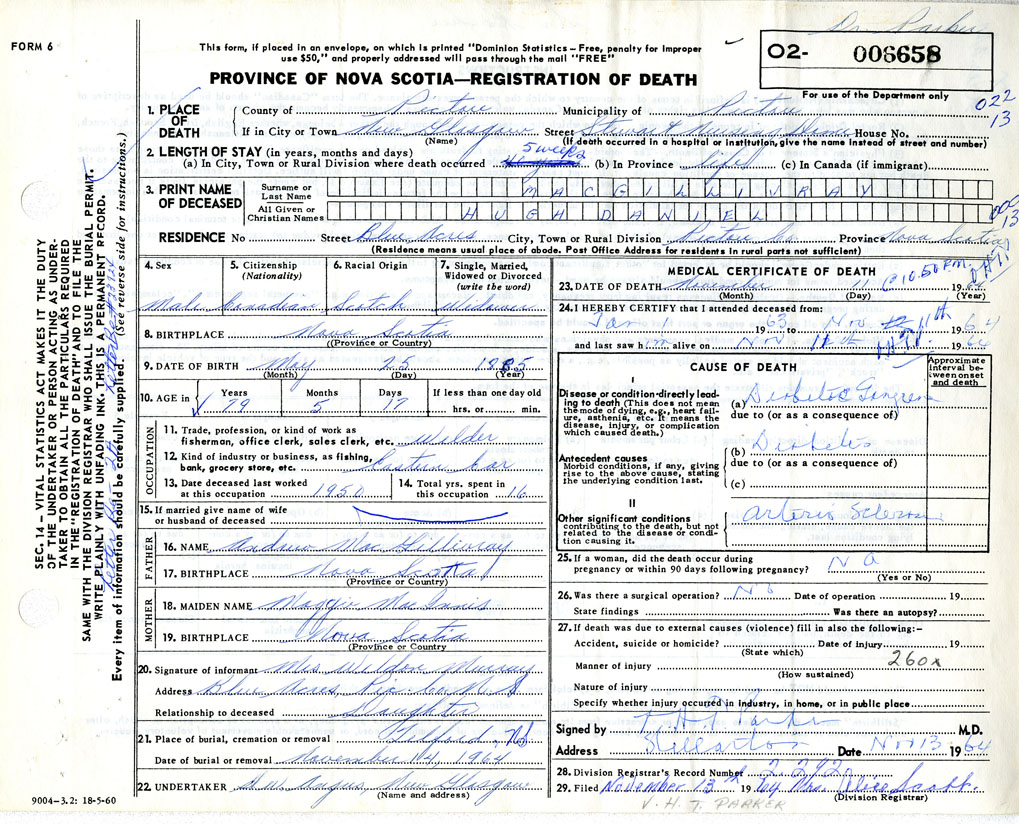 Dr. Parker
FORM 6
This form, if placed in an envelope, on which is printed "Dominion Statistics – Free, penalty for improper
use $50," and properly addressed will pass through the mail "FREE"
O2- 008658
PROVINCE OF NOVA SCOTIA—REGISTRATION OF DEATH
For use of the Department only
022
13
1. PLACE OF DEATH
County of Pictou Municipality of Pictou
If in City or Town New Glasgow Street Stewart Nursing Home House No.
(Name) (If death occurred in a hospital or institution, give the name instead of street and number)
2. LENGTH OF STAY (in years, months and days) 5 weeks
(a) In City, Town or Rural Division where death occurred (b) In Province life (c) In Canada (if immigrant)
3. PRINT NAME OF DECEASED
Surname or Last Name MACGILLIVRAY
All Given or Christian Names HUGH DANIEL
13
RESIDENCE No Street Blue Acres City, Town or Rural Division Pictou Co. Province Nova Scotia
(Residence means usual place of abode. Post Office Address for residents in rural parts not sufficient)
4. Sex
Male
5. Citizenship
(Nationality)
Canadian
6. Racial Origin
Scotch
7. Single, Married,
Widowed or Divorced
(write the word)
Widower
8. BIRTHPLACE Nova Scotia
(Province or Country)
9. DATE OF BIRTH May 25 1885
(Month) (Day) (Year)
10. AGE in Years Months Days If less than one day old
79 5 17 hrs. or min.
OCCUPATION
11. Trade, profession, or kind of work as
fisherman, office clerk, sales clerk, etc. Welder
12. Kind of industry or business, as fishing,
bank, grocery store, etc. Eastern Car
13. Date deceased last worked
at this occupation 1950
14. Total yrs. spent in
this occupation 16
15. If married give name of wife
or husband of deceased
FATHER
16. NAME Andrew MacGillivray
17. BIRTHPLACE Nova Scotia
(Province or Country)
MOTHER
18. MAIDEN NAME Maggie MacInnis
19. BIRTHPLACE Nova Scotia
(Province or Country)
20. Signature of informant Mrs Weldon Murray
Address Blue Acres Pic. Co. N.S
Relationship to deceased Daughter
21. Place of burial, cremation or removal Telford, NS
Date of burial or removal November 14, 1964
22. UNDERTAKER H.W. Angus, New Glasgow
(Name and address)
MEDICAL CERTIFICATE OF DEATH
@ 10.50 P.M.
23. DATE OF DEATH November 11 1964
(Month) (Day) (Year)
24. I HEREBY CERTIFY that I attended deceased from:
Jan 1 1963 to Nov 11th 1964
and last saw him alive on Nov 11th 1964
CAUSE OF DEATH
Approximate interval between onset and death
I
Disease or condition directly leading to death (This does not mean the mode of dying, e.g., heart failure, asthenia, etc. It means the disease, injury, or complication which caused death.)
(a) Diabetic Gangrene
due to (or as a consequence of)
Antecedent causes
Morbid conditions, if any, giving rise to the above cause, stating the underlying condition last.
(b) Diabetes
due to (or as a consequence of)
(c)
II
Other significant conditions
contributing to the death, but not related to the disease or condition causing it.
Arterio Sclerosis
25. If a woman, did the death occur during
pregnancy or within 90 days following pregnancy? N A
(Yes or No)
26. Was there a surgical operation? No Date of operation 19
State findings Was there an autopsy?
27. If death was due to external causes (violence) fill in also the following:–
Accident, suicide or homicide? Date of injury 19
(State which)
260x
Manner of injury
(How sustained)
Nature of injury
Specify whether injury occurred in industry, in home, or in public place
Signed by V.H.T. Parker M.D.
Address Stellarton Date Nov 13 1964
28. Division Registrar's Record Number 2.292
29. Filed November 13th 1964 Mrs. Alice Scott
(Division Registrar)
V. H. T. PARKER
SEC. 14 – VITAL STATISTICS ACT MAKES IT THE DUTY
OF THE UNDERTAKER OR PERSON ACTING AS UNDER-
TAKER TO OBTAIN ALL THE PARTICULARS REQUIRED
IN THE "REGISTRATION OF DEATH" AND TO FILE THE
SAME WITH THE DIVISION REGISTRAR WHO SHALL ISSUE THE BURIAL PERMIT.
WRITE PLAINLY WITH UNFADING INK. THIS IS A PERMANENT RECORD.
Every item of information should be carefully supplied. (See reverse side for instructions.)
9004–3.2: 18-5-60